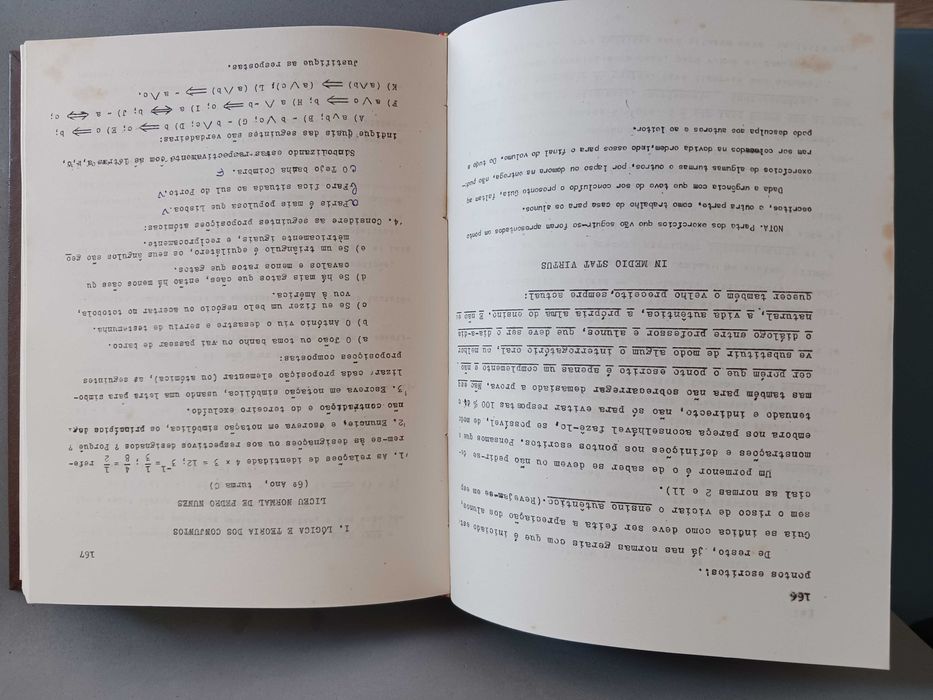 166
pontos escritos!.
De resto, já nas normas gerais com que é iniciado est
Guia se indica como deve ser feita a apreciação dos alunos,
sem o risco de viciar o ensino autêntico.(Revejam-se em esp
cial as normas 2 e 11).
Um pormenor é o de saber se devem ou não pedir-se
monstrações e definições nos pontos escritos. Pensamos que
embora nos pareça aconselhável fazê-lo, se possível, de mode
tenuado e indirecto, não só para evitar respostas 100 %
mas também para não sobrecarregar demasiado a prova. Não
cer porém que o ponto escrito é apenas um complemento e não
ve substituir de modo algum o interrogatório oral, ou melhor
o diálogo entre professor e alunos, que deve ser o dia-a-dia
natural, a vida autêntica, a própria alma do ensino. E não
quecer também o velho preceito, sempre actual:
IN MEDIO STAT VIRTUS
NOTA. Parte dos exercícios que vão seguir-se foram apresentados em ponto
escritos, e outra parte, como trabalho de casa para os alunos.
Dada a urgência com que teve de ser concluído o presente Guia, faltam aq
exercícios de algumas turmas e outros, por lapso ou demora na entrega, não pud-
ram ser colocados na devida ordem, indo esses para o final do volume. De tudo s
pede desculpa aos autores e ao leitor.
167
I. LÓGICA E TEORIA DOS CONJUNTOS
LICEU NORMAL DE PEDRO NUNES
(6º Ano, turma C)
1. As relações de identidade 4 x 3 = 12; 3⁻¹ = 1/3 ; 4/8 = 1/2 refe-
rem-se às designações ou aos respectivos designados ? Porquê ?
2. Enuncie, e escreva em notação simbólica, os princípios da
não contradição e do terceiro excluído.
3. Escreva em notação simbólica, usando uma letra para simbo-
lizar cada proposição elementar (ou atómica), as seguintes
proposições compostas:
a) O João ou toma banho ou vai passear de barco.
b) O António viu o desastre e serviu de testemunha.
c) Se eu fizer um belo negócio ou acertar no totobola,
vou à América.
d) Se há mais gatos que cães, então há menos cães qu
cavalos e menos ratos que gatos.
e) Se um triângulo é equilátero, os seus ângulos são geo
mètricamente iguais, e recìprocamente.
4. Considere as seguintes proposições atómicas:
a Paris é mais populosa que Lisboa. V
b Faro fica situada ao sul do Porto. V
c O Tejo banha Coimbra. F
Simbolizando estas respectivamente com as letras "a, b,
indique quais das seguintes são verdadeiras:
A) a∨b; B) ~ b∨c, G) ~ b∧c; D) b ⟺ c; E) c ⟺ b;
F) a∨c ⟺ b; H) a ∧ ~ b ⟺ c; I) a ⟺ b; J) ~ a ⟺ c;
K) (a∧b) ⟺ c∨a); L) (a∧b) ⟺ ~ a∨c.
Justifique as respostas.